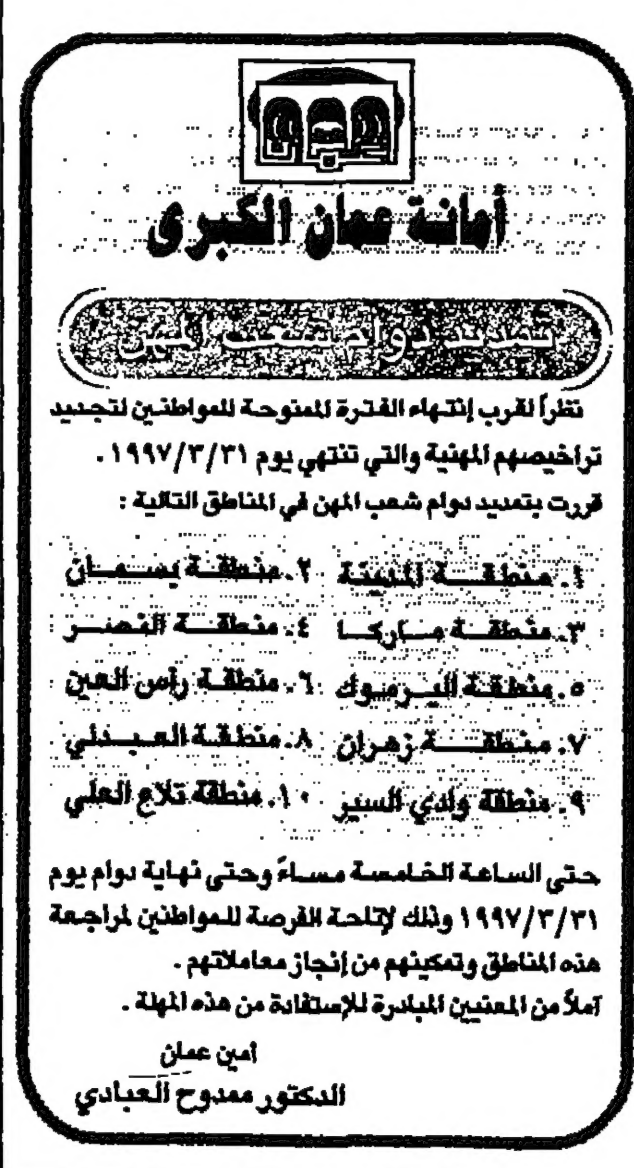 أمانة عمان الكبرى
تمديد دوام شعب المهن
نظراً لقرب إنتهاء الفترة الممنوحة للمواطنين لتجديد
تراخيصهم المهنية والتي تنتهي يوم ١٩٩٧/٣/٣١ .
قررت بتمديد دوام شعب المهن في المناطق التالية :
١. منطقة المدينة ٢. منطقة بسمان
٣. منطقة ماركا ٤. منطقة النصر
٥. منطقة اليرموك ٦. منطقة رأس العين
٧. منطقة زهران ٨. منطقة العبدلي
٩. منطقة وادي السير ١٠. منطقة تلاع العلي
حتى الساعة الخامسة مساءً وحتى نهاية دوام يوم
١٩٩٧/٣/٣١ وذلك لإتاحة الفرصة للمواطنين لمراجعة
هذه المناطق وتمكينهم من إنجاز معاملاتهم .
آملاً من المعنيين المبادرة للإستفادة من هذه المهلة .
أمين عمان
الدكتور ممدوح العبادي